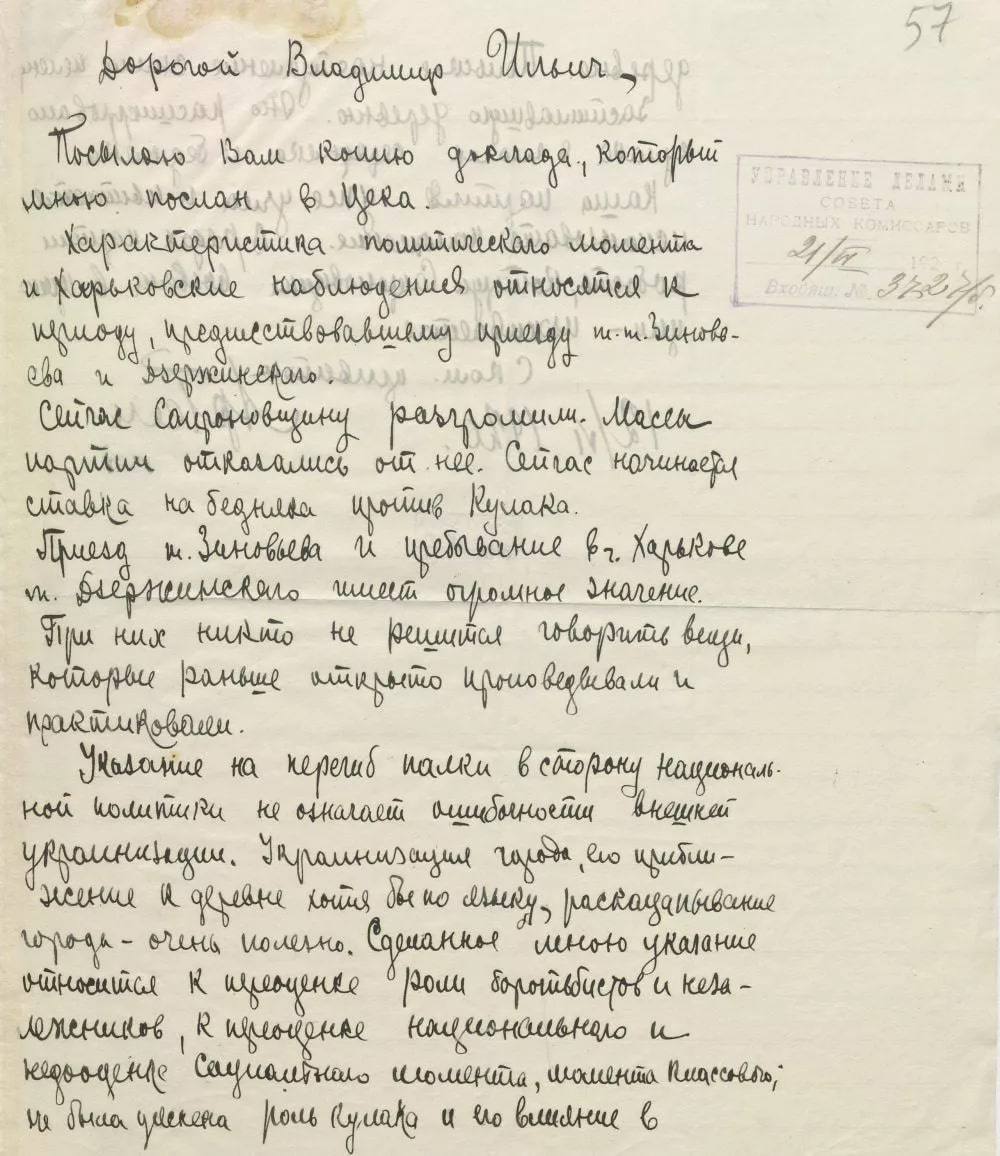 57
Дорогой Владимир Ильич,
Посылаю Вам копию доклада, который
мною послан в Цека.
Характеристика политического момента
и Харьковские наблюдения относятся к
периоду, предшествовавшему приезду т.т. Зиновь-
ева и Дзержинского.
Сейчас Сапроновщину разгромили. Массы
партии отказались от нее. Сейчас начинается
ставка на бедняка против Кулака.
Приезд т. Зиновьева и пребывание в г. Харькове
т. Дзержинского имеет огромное значение.
При них никто не решится говорить вещи,
которые раньше открыто проповедывали и
практиковали.
Указание на перегиб палки в сторону националь-
ной политики не означает ошибочности внешней
украинизации. Украинизация города, его прибли-
жение к деревне хотя бы по языку, раскацапывание
города – очень полезно. Сделанное мною указание
относится к переоценке роли боротьбистов и неза-
лежников, к переоценке национального и
недооценке социального момента, момента классового;
не была уяснена роль кулака и его влияние в
УПРАВЛЕНИЕ ДЕЛАМИ
СОВЕТА
НАРОДНЫХ КОМИССАРОВ
21/VI 192
Входящ. № 3727/б.